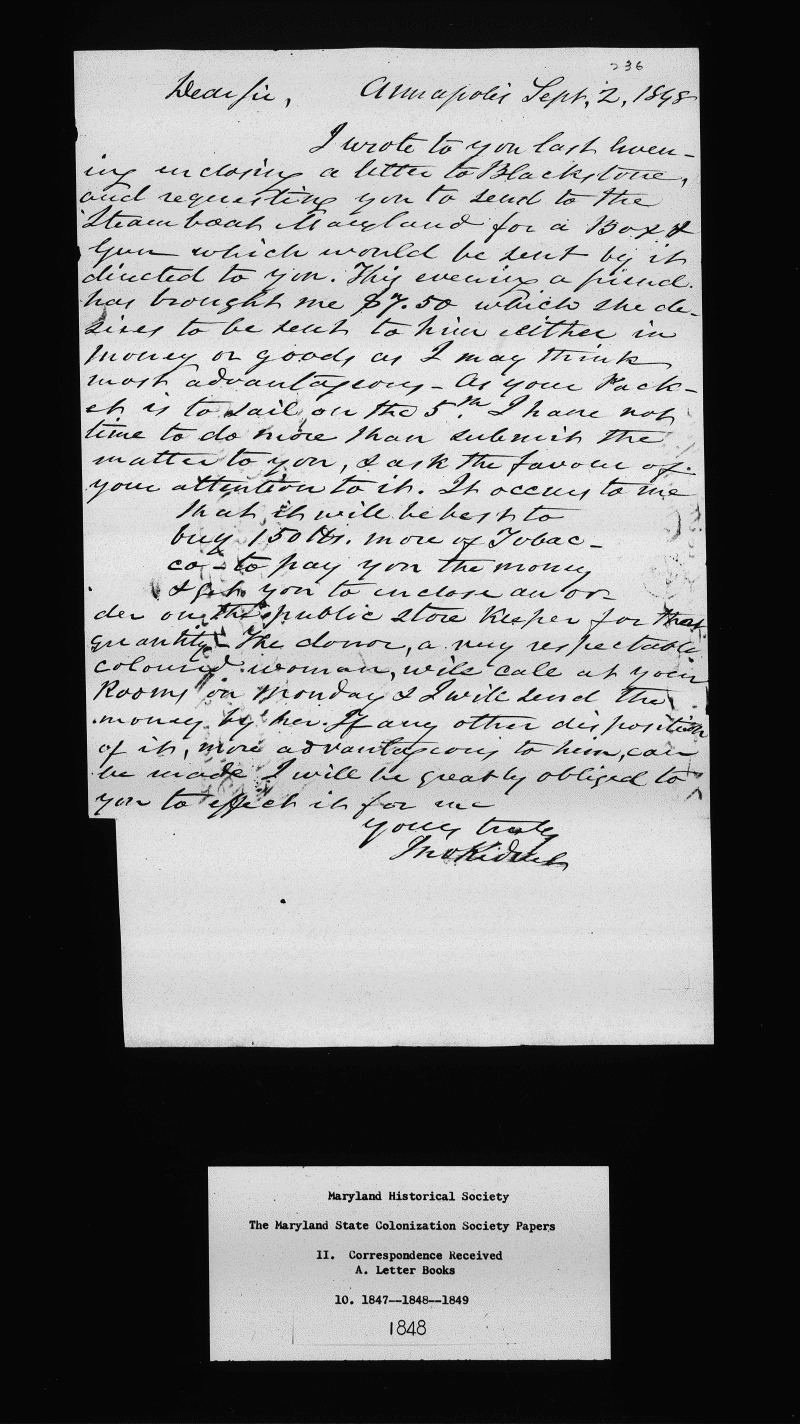 236
Dear Sir, Annapolis Sept. 2, 1848
I wrote to you last Even-
ing inclosing a letter to Blackstone,
and requesting you to send to the
Steam boat Maryland for a Box &
Gun which would be sent by it
directed to you. This evening a friend
has brought me $7.50 which she de-
sires to be sent to him either in
money or goods as I may think
most advantageous - As your Pack-
et is to sail on the 5th I have not
time to do more than submit the
matter to you, & ask the favour of
your attention to it. It occurs to me
that it will be best to
buy 150 lbs. more of Tobac-
co - to pay you the money
& get you to inclose an or-
der on the public store keeper for that
quantity - The donor, a very respectable
coloured woman, will call at your
Rooms on Monday & I will send the
money by her. If any other disposition
of it, more advantageous to him, can
be made I will be greatly obliged to
you to effect it for me
yours truly
Jno
Maryland Historical Society
The Maryland State Colonization Society Papers
II. Correspondence Received
A. Letter Books
10. 1847--1848--1849
1848